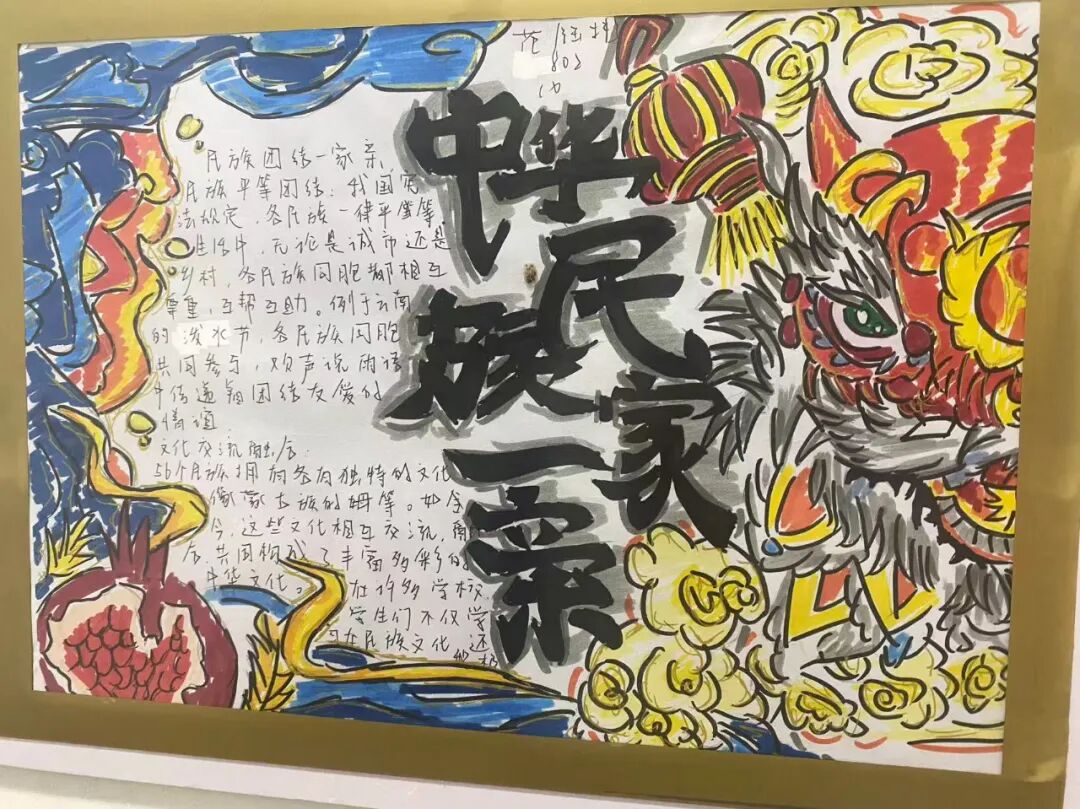 范
802
中华
民族
一家亲
民族团结一家亲
民族平等团结：我国宪
法规定，各民族一律平等
生活中，无论是城市还是
乡村，各民族同胞都相互
尊重，互帮互助。例于云南
的泼水节，各民族同胞
共同参与，欢声说雨语
中传递着团结友爱的
情谊
文化交流融合：
56个民族拥有各有独特的文化
像蒙古族的姆等。如今
今，这些文化相互交流，融
合，共同构成了丰富多彩的
中华文化。在许多学校，
学生们不仅学
习在民族文化还